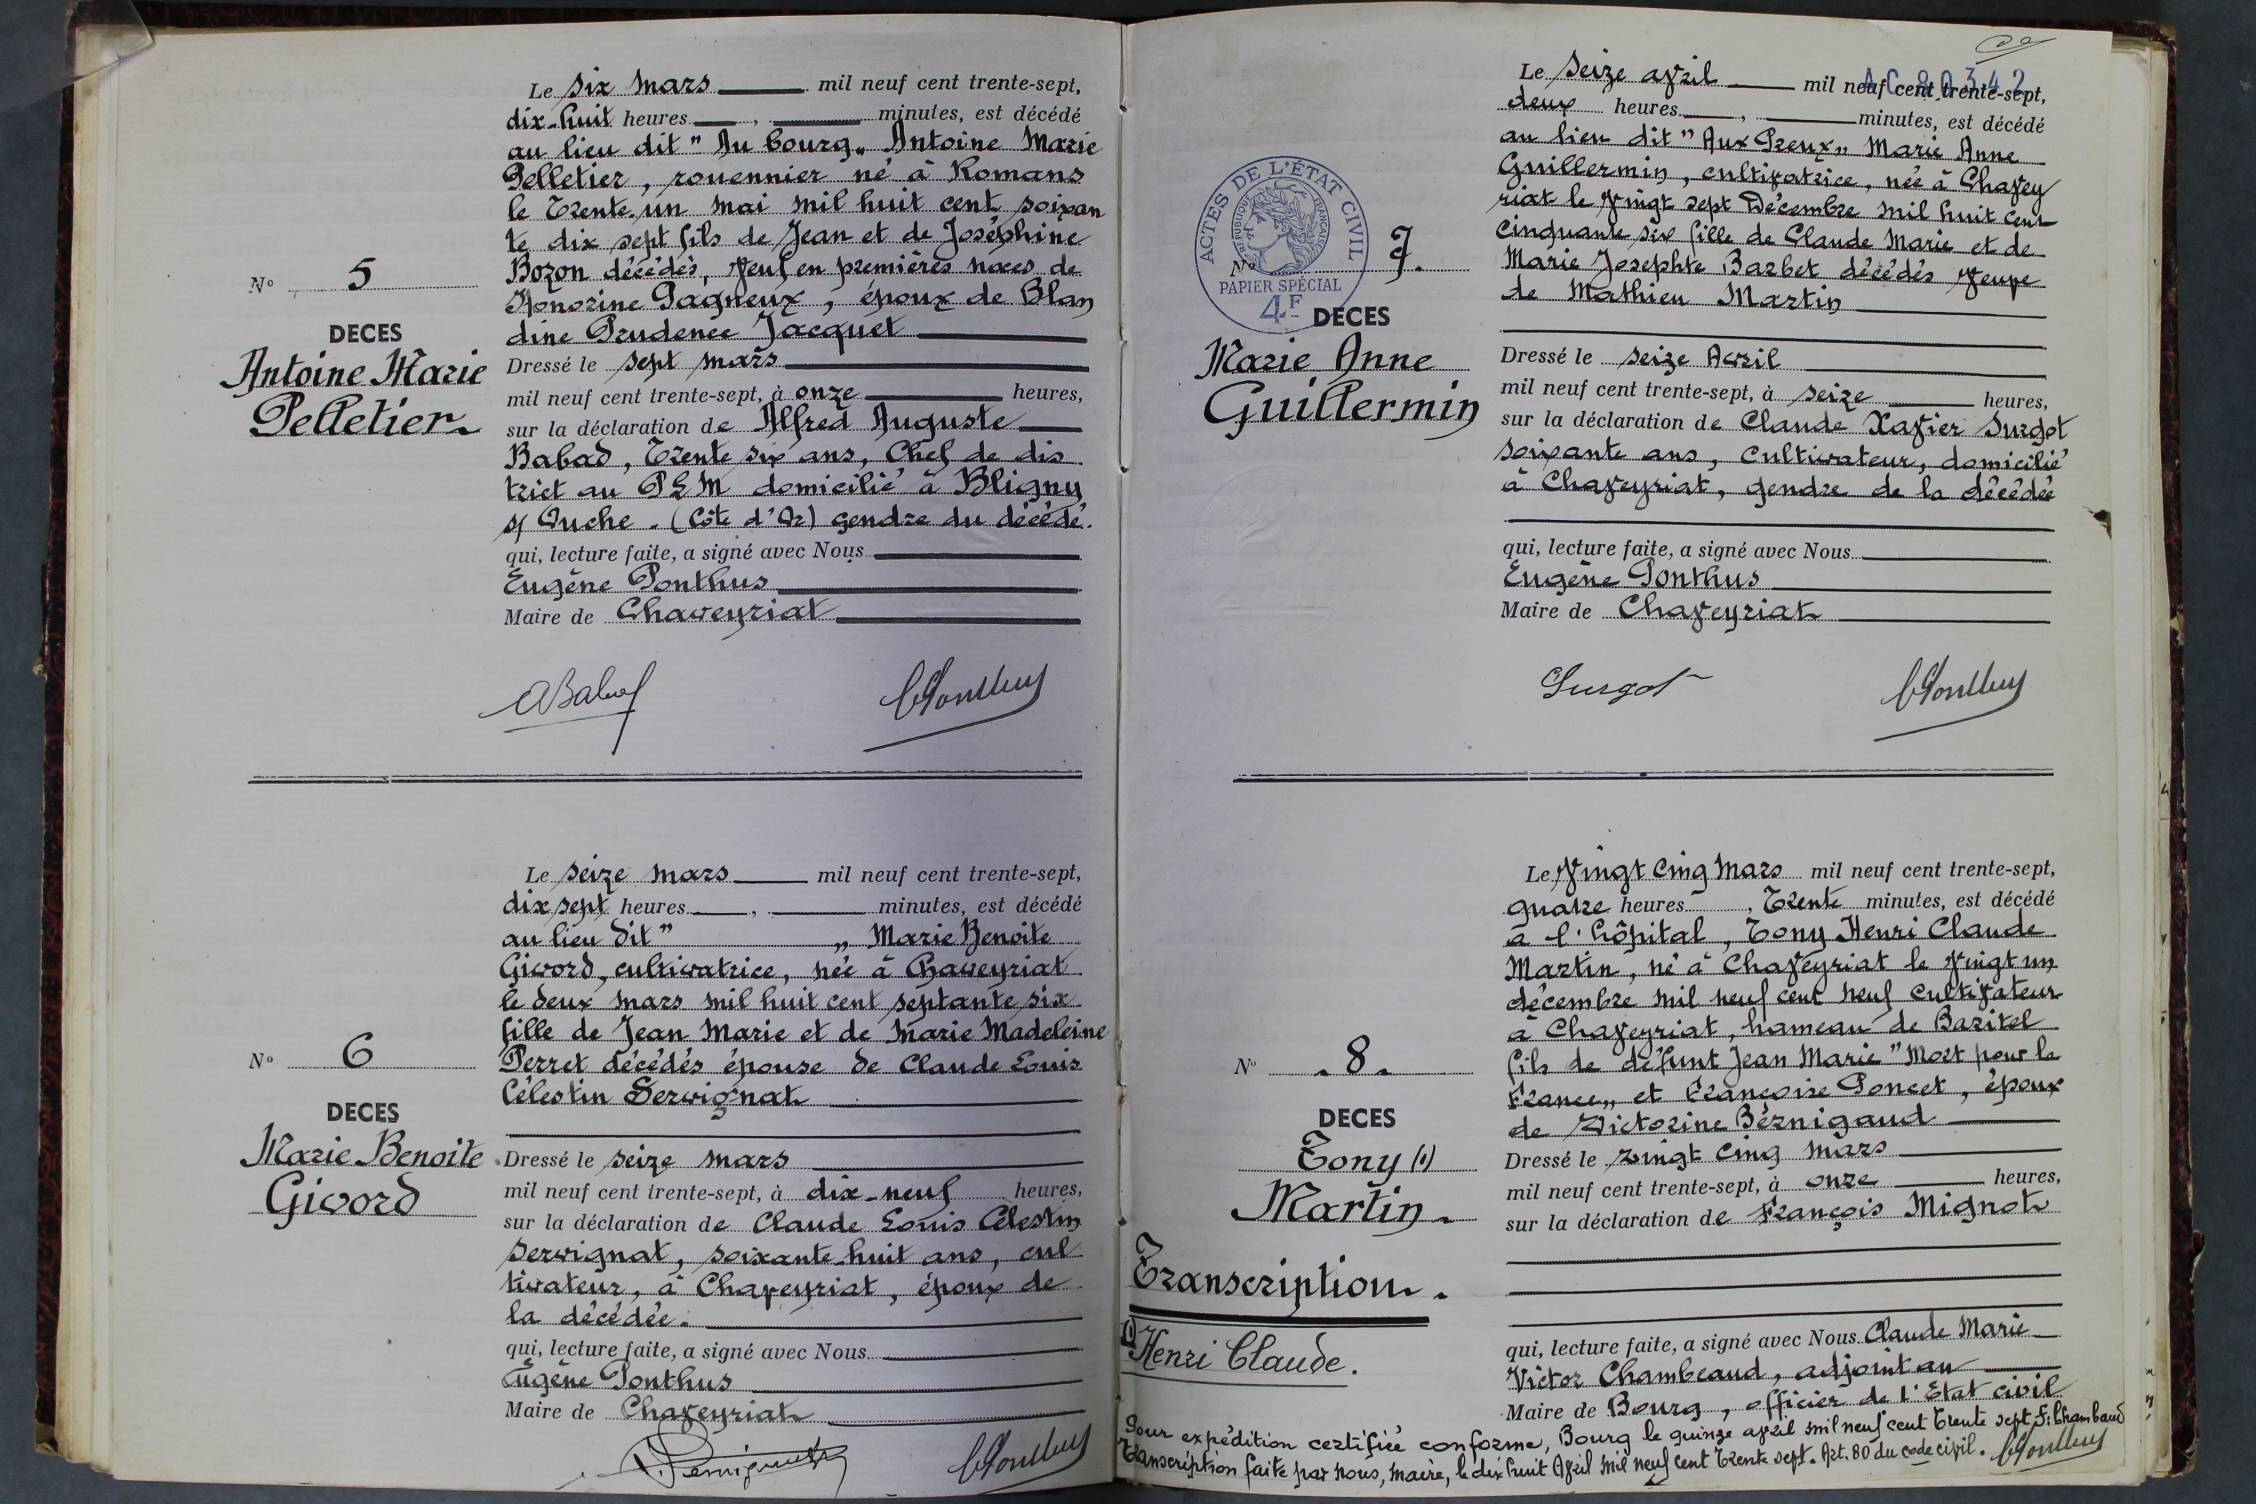 Le six mars mil neuf cent trente-sept,
dix-huit heures , minutes, est décédé
au lieu dit " Au bourg„ Antoine Marie
Pelletier, rouennier né à Romans
le Trente-un mai mil huit cent soixan
te dix sept fils de Jean et de Joséphine
Bozon décédés, veuf en premières noces de
Honorine Pagneux, époux de Blan
dine Prudence Jacquet
Dressé le sept mars
mil neuf cent trente-sept, à onze heures,
sur la déclaration de Alfred Auguste
Babad, Trente six ans, Chef de dis
trict au PLM domicilié à Bligny
s/ Ouche. (Côte d'Or) gendre du décédé.
qui, lecture faite, a signé avec Nous
Eugène Ponthus
Maire de Chaveyriat
N° 5
DECES
Antoine Marie
Pelletier
ABabad
EPonthus
Le seize mars mil neuf cent trente-sept,
dix sept heures , minutes, est décédé
au lieu dit " „ Marie Benoite
Givord, cultivatrice, née à Chaveyriat
le deux mars mil huit cent septante six
fille de Jean Marie et de Marie Madeleine
Perret décédés épouse de Claude Louis
Célestin Servignat
N° 6
DECES
Marie Benoite
Givord
Dressé le seize mars
mil neuf cent trente-sept, à dix-neuf heures,
sur la déclaration de Claude Louis Célestin
Servignat, soixante-huit ans, cul
tivateur, à Chaveyriat, époux de
la décédée.
qui, lecture faite, a signé avec Nous
Eugène Ponthus
Maire de Chaveyriat
Servignat
EPonthus
AC 80342
Le seize avril mil neuf cent trente-sept,
deux heures , minutes, est décédé
au lieu dit " Aux Preux„ Marie Anne
Guillermin, cultivatrice, née à Chavey
riat le vingt sept Décembre mil huit cent
cinquante six fille de Claude Marie et de
Marie Josephte Barbet décédés veuve
de Mathieu Martin
ACTES DE L'ÉTAT CIVIL
RÉPUBLIQUE FRANÇAISE
PAPIER SPÉCIAL
4F
N° 7.
DECES
Marie Anne
Guillermin
Dressé le seize Avril
mil neuf cent trente-sept, à seize heures,
sur la déclaration de Claude Xavier Surgot
soixante ans, cultivateur, domicilié
à Chaveyriat, gendre de la décédée
qui, lecture faite, a signé avec Nous
Eugène Ponthus
Maire de Chaveyriat
Surgot
EPonthus
Le vingt cinq Mars mil neuf cent trente-sept,
quatre heures , Trente minutes, est décédé
à l'hôpital, Tony Henri Claude
Martin, né à Chaveyriat le vingt un
décembre mil neuf cent neuf cultivateur
à Chaveyriat, hameau de Baritel
fils de défunt Jean Marie "Mort pour la
France„ et Françoise Poncet, époux
de Victorine Bérnigaud
N° .8.
DECES
Tony (1)
Martin
Transcription.
(1) Henri Claude.
Dressé le vingt cinq mars
mil neuf cent trente-sept, à onze heures,
sur la déclaration de François Mignot
qui, lecture faite, a signé avec Nous Claude Marie
Victor Chambeaud, adjoint au
Maire de Bourg, officier de l'Etat civil
Pour expédition certifiée conforme, Bourg le quinze avril mil neuf cent trente sept. F: Chambaud
Transcription faite par nous, maire, le dix huit Avril mil neuf cent trente sept. Art. 80 du code civil. EPonthus